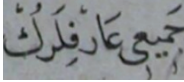 جميعي عارفلرك